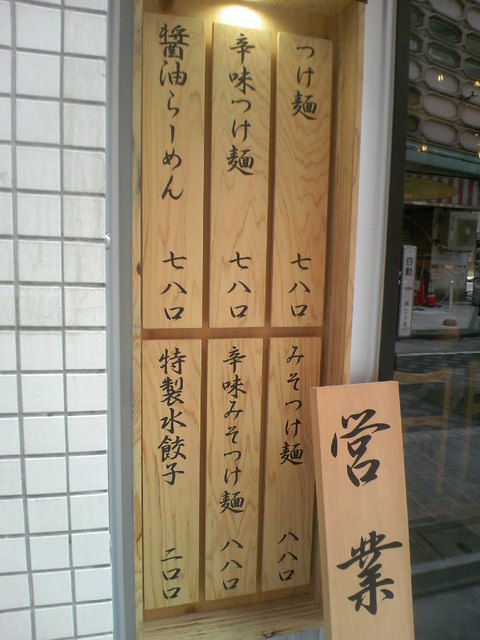 つけ麺 七八〇
辛味つけ麺 七八〇
醤油らーめん 七八〇
みそつけ麺 八八〇
辛味みそつけ麺 八八〇
特製水餃子 二〇〇
営業
自動